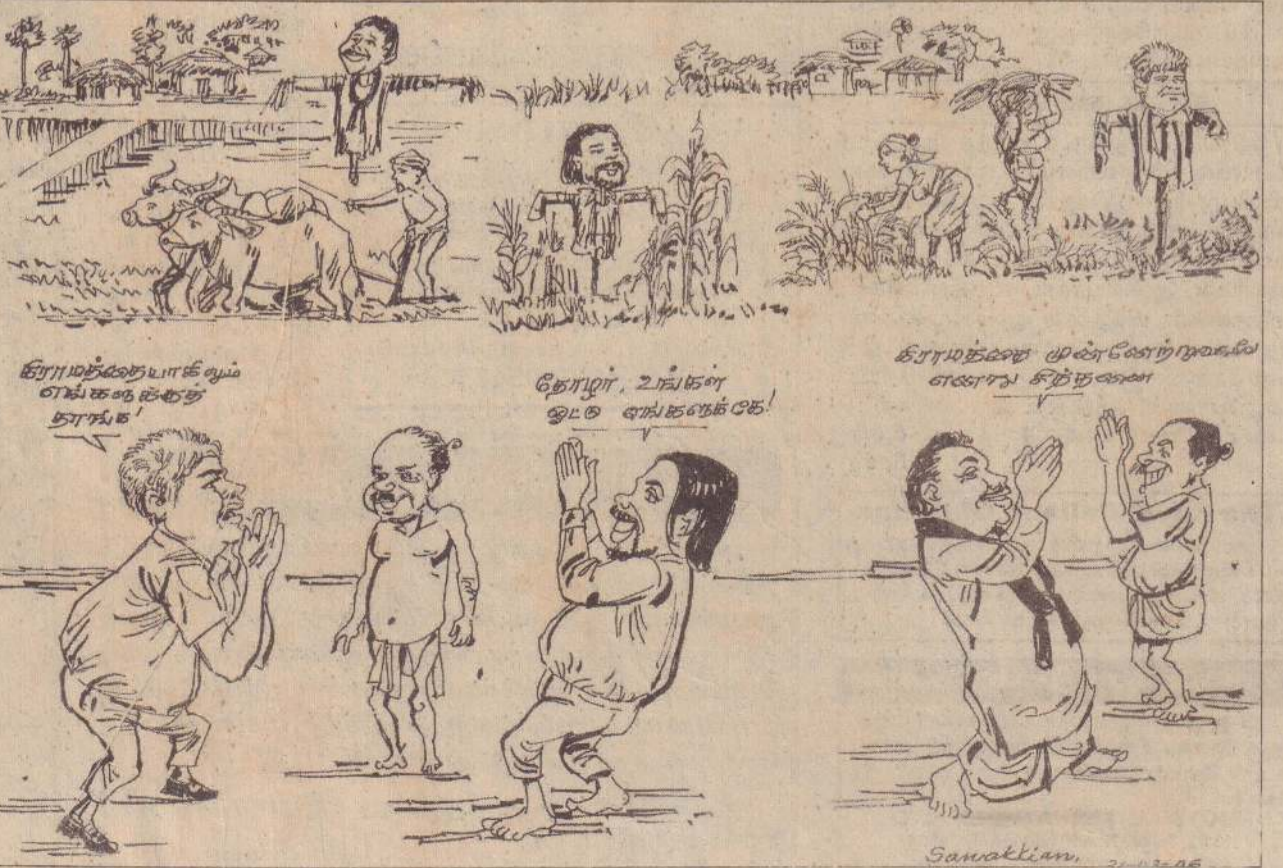 கிராமத்தையாகிலும்
எங்களுக்குத்
தாங்க!
தோழர், உங்கள்
ஓட்டு எங்களுக்கே!
கிராமத்தை முன்னேற்றுவதையே
எனது சிந்தனை
Sawakkian.